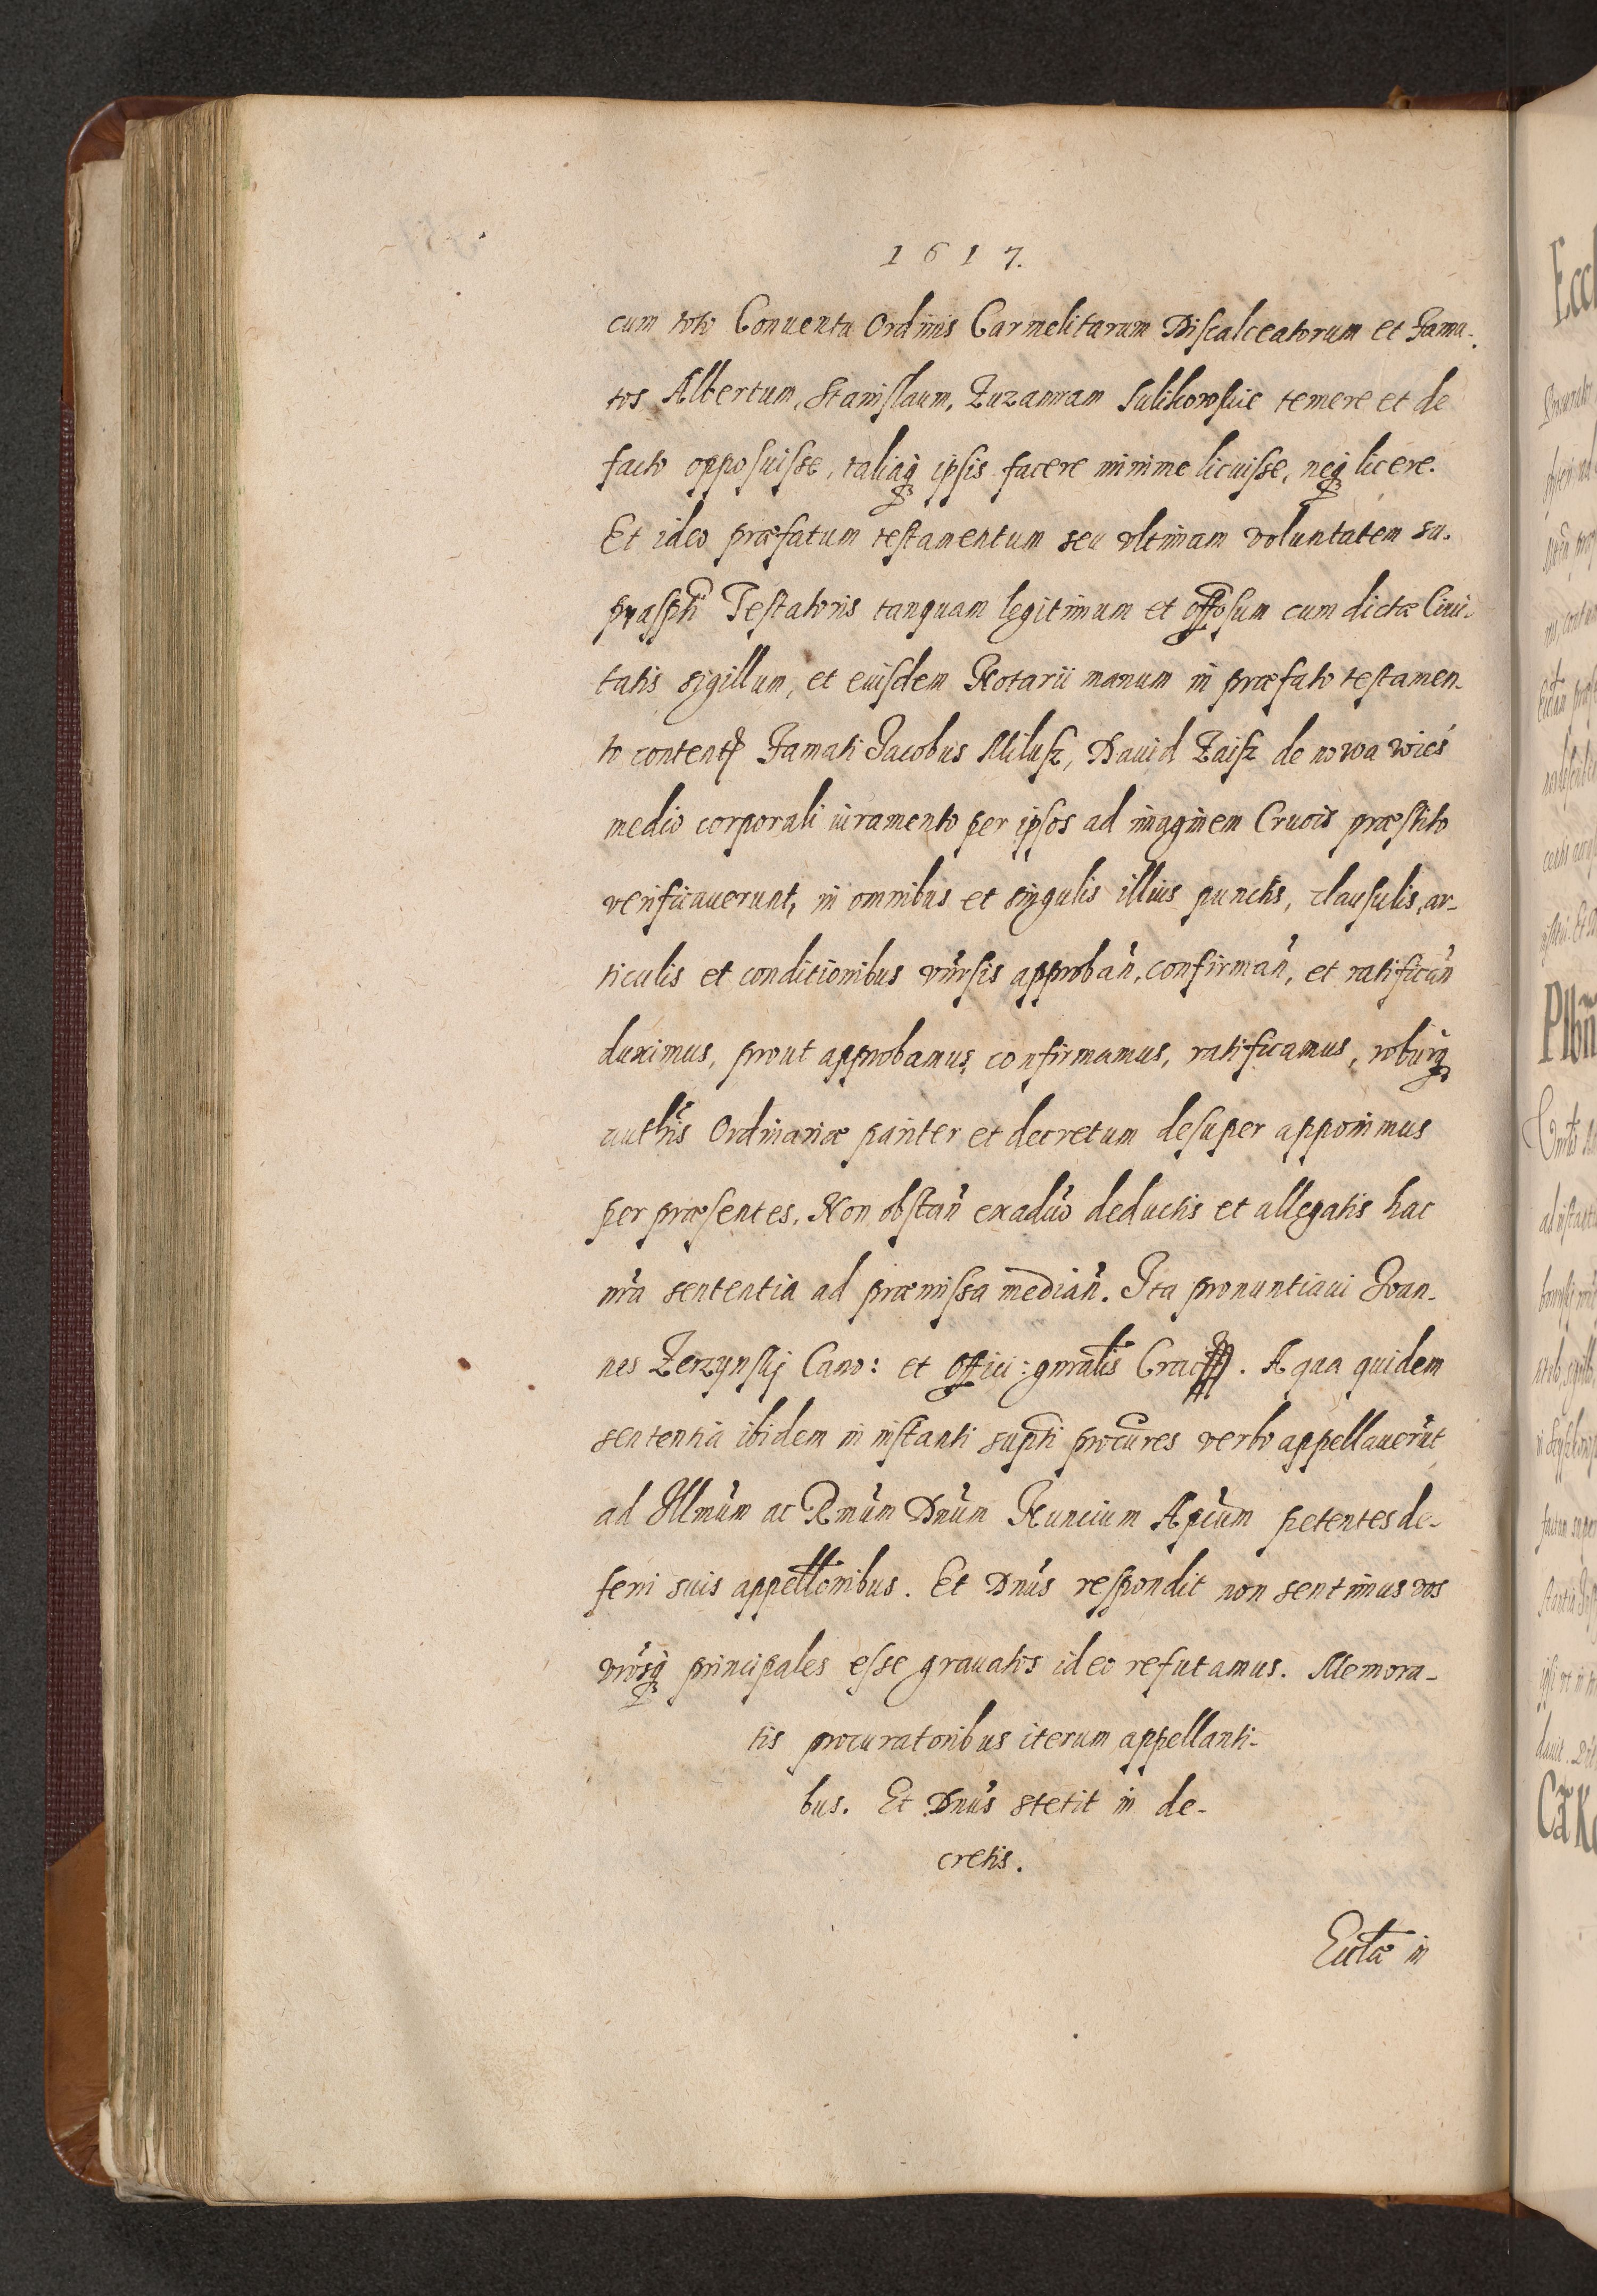 1617.
cum toto Conuentu Ordinis Carmelitarum Discalceatorum et Fama-
tos Albertum, Stanislaum, Zuzannam Sulikowskie temere et de
facto opposuisse, taliaq ipsis facere minime licuisse, neq licere.
Et ideo præfatum testamentum seu vltimam voluntatem su-
prascpti Testatoris tanquam legitimum et offosum cum dictæ Ciui-
tatis sigillum, et eiusdem Notarii manum in præfato testamen-
to content Famati Jacobus Milusz, Dauid Zaisz de nowa wieś
medio corporali iuramento per ipsos ad imaginem Crucis præstito
verificauerunt, in omnibus et singulis illius punctis, clausulis, ar-
ticulis et conditionibus vnirsis approban, confirman, et ratifican
duximus, prout approbamus, confirmamus, ratificamus, roburq
authis Ordinariæ pariter et decretum desuper apponimus
per præsentes. Non obstan exaduo deductis et allegatis hac
nra sententia ad præmissa median. Ita pronuntiaui Joan-
nes Zerzynskj Cano: et Offici: gnralis Crac. A qua quidem
sententia ibidem in instanti supti procures verbo appellauerut
ad Illmum ac Rmum Dnum Nuncium Apcum petentes de-
ferri suis appellonibus. Et Dnus respondit non sentimus vos
vrosq principales esse grauatos ideo refutamus. Memora-
tis procuratoribus iterum appellanti-
bus. Et Dnus stetit in de-
cretis.
in